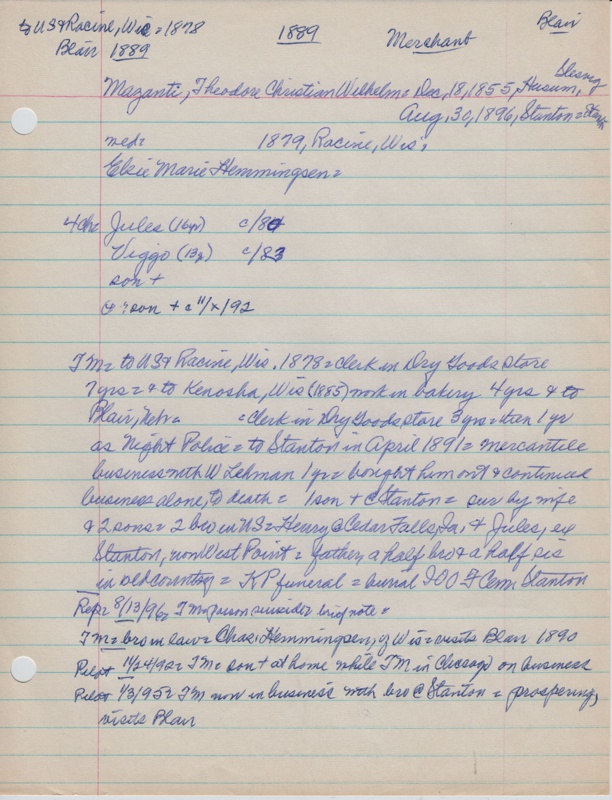 to US & Racine, Wis = 1878 1889 Merchant Blair
Blair 1889
Mazanti, Theodore Christian Wilhelm = Dec, 18, 1855, Husum, Slesvig
Aug, 30, 1896, Stanton = Stanton
med = 1879, Racine, Wis,
Elsie Marie Hemmingsen =
4 chr Jules (16yr) c/80
Viggo (13y) c/83
son +
son + c 11/x/92
TM = to US & Racine, Wis. 1878 = clerk in Dry Goods store
7 yrs = & to Kenosha, Wis (1885) work in bakery 4 yrs & to
Blair, Neb. = clerk in Dry Goods store 3 yrs = then 1 yr
as Night Police = to Stanton in April 1891 = mercantile
business with W Lehman 1 yr = bought him out & continued
business alone, to death = 1 son + @ Stanton = sur by wife
& 2 sons = 2 bro in US = Henry @ Cedar Falls, Ia, & Jules, ex
Stanton, now West Point = father, a half bro & a half sis
in old country = KP funeral = burial IOOF Cem Stanton
Rep = 8/13/96 = TM poison suicide = brief note =
TM = bro in law = Chas. Hemmingsen, of Wis = visits Blair 1890
Pilot 11/24/92 = TM = son + at home while TM in Chicago on business
Pilot 1/3/95 = TM now in business with bro @ Stanton = prospering,
visits Blair